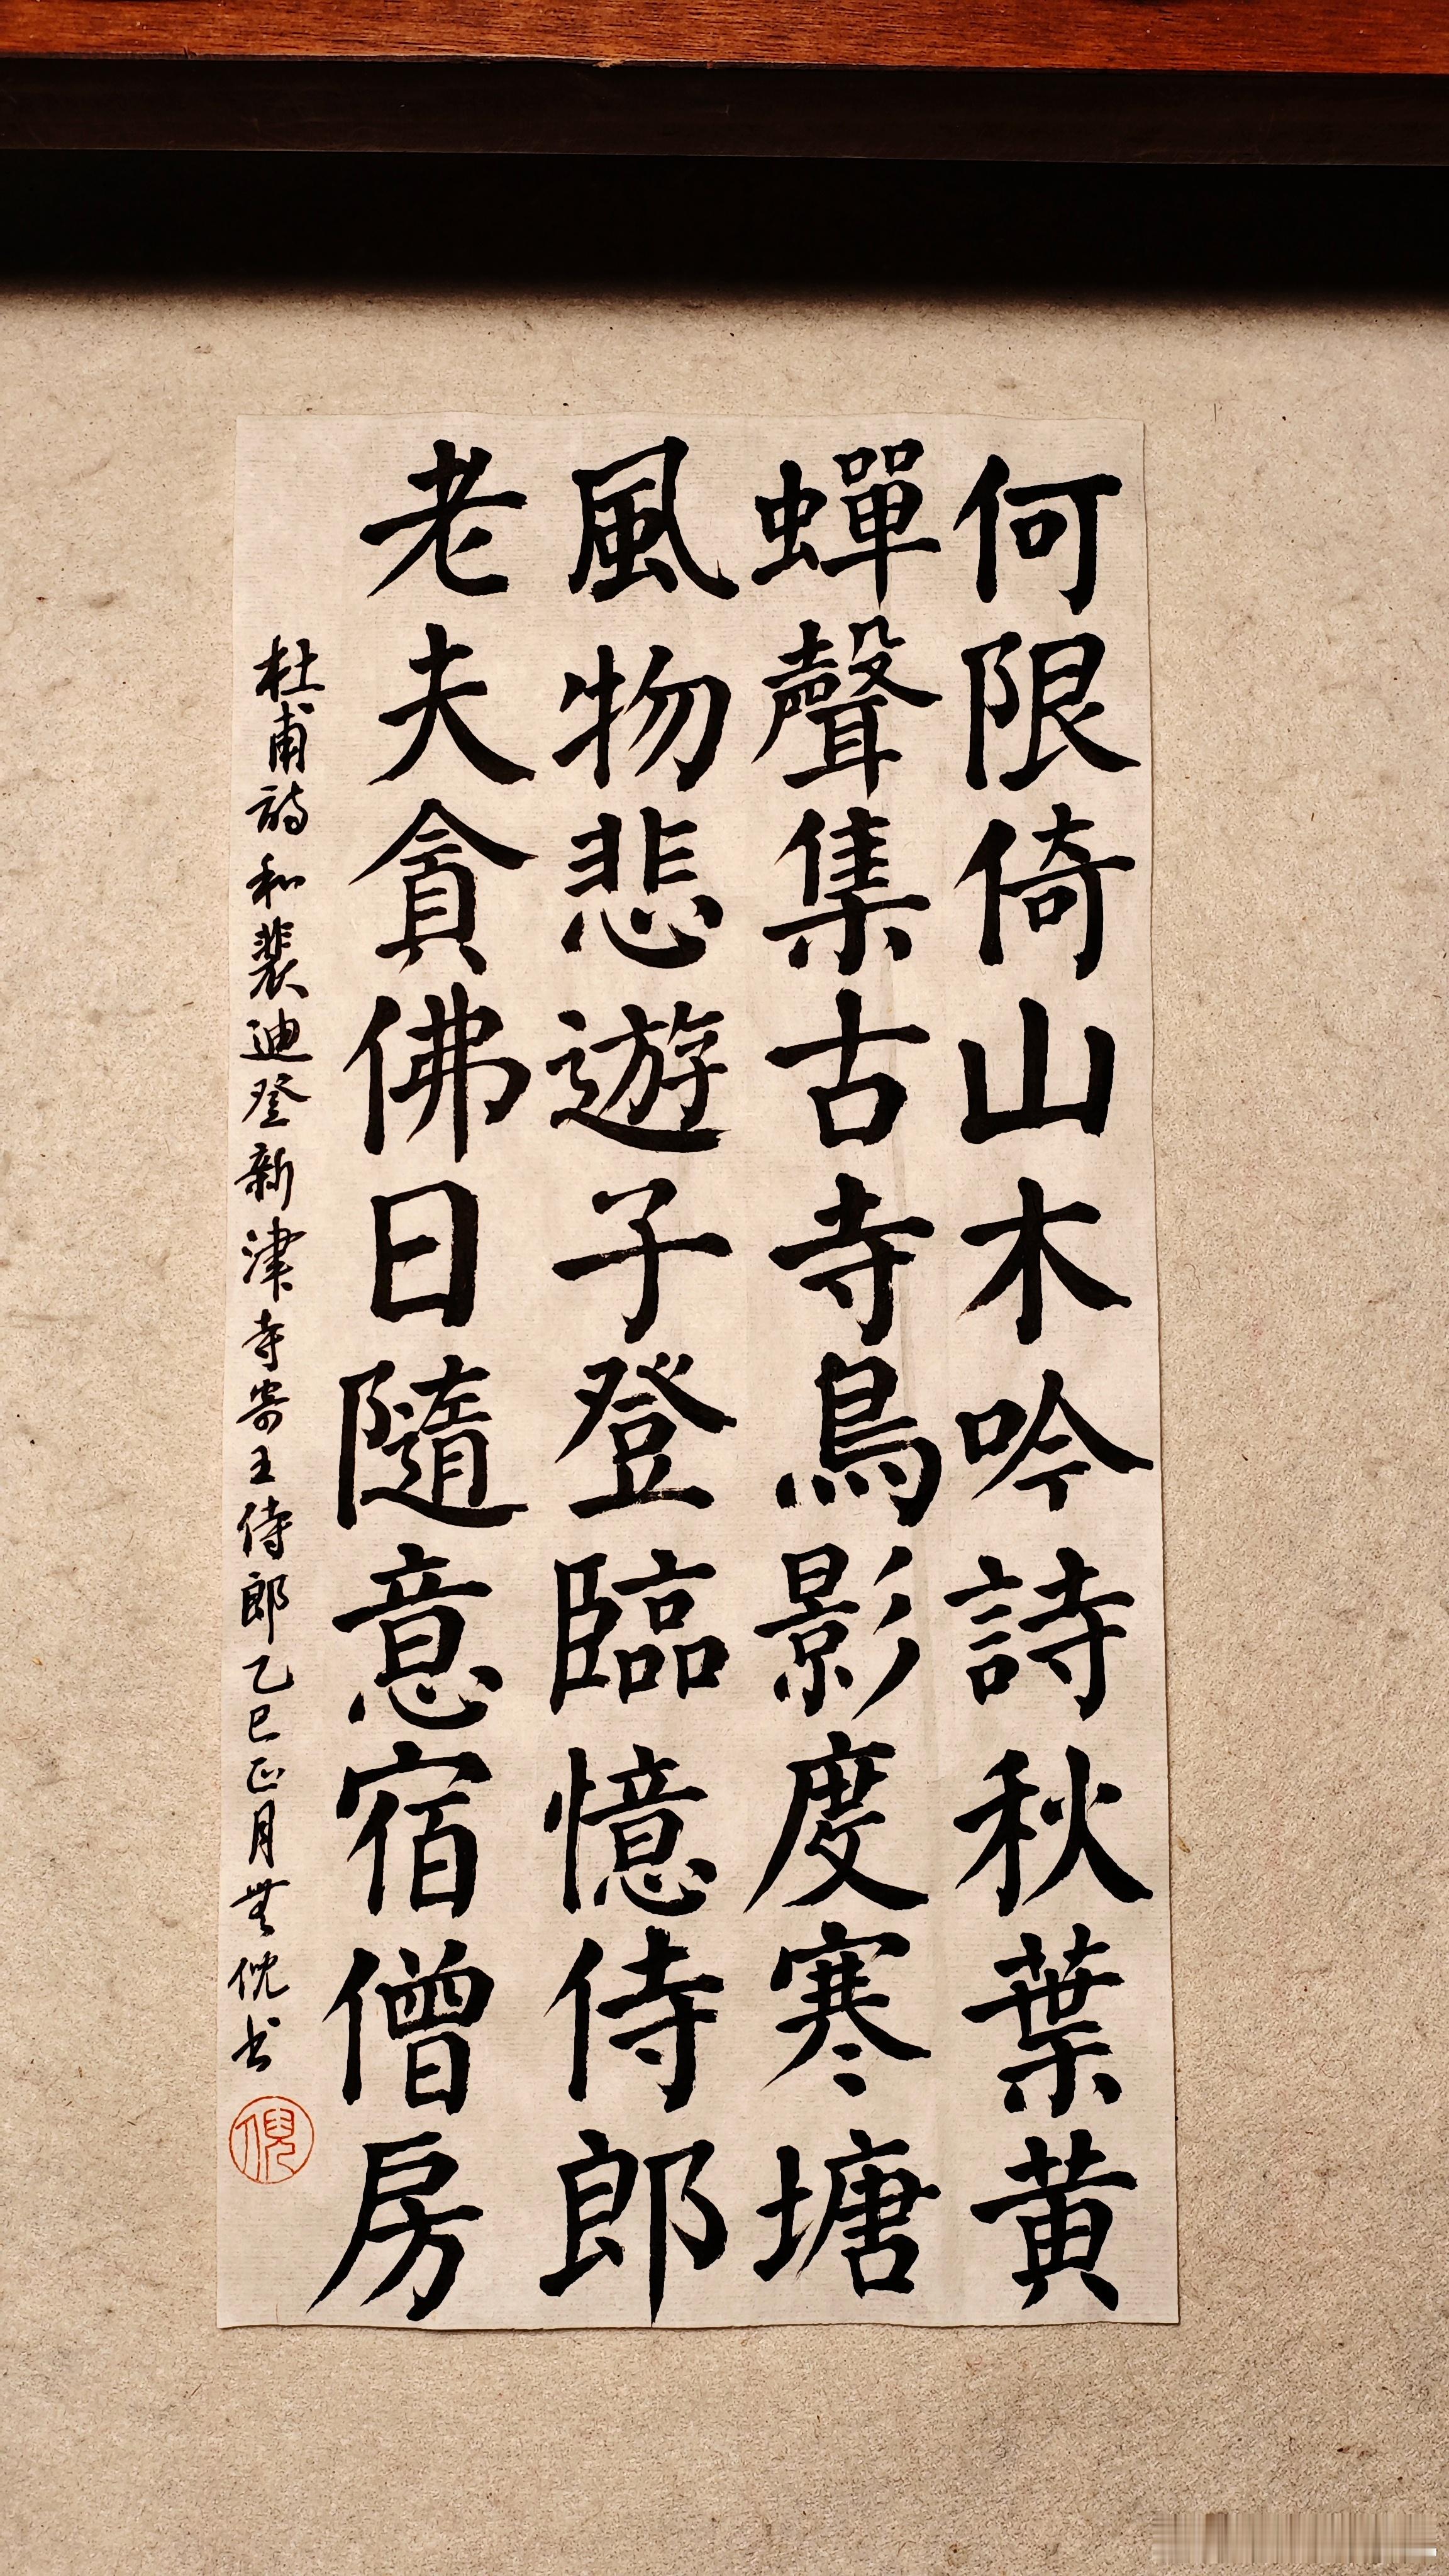 何限倚山木吟詩秋葉黄
蟬聲集古寺鳥影度寒塘
風物悲遊子登臨憶侍郎
老夫貪佛日隨意宿僧房
杜甫詩和裴迪登新津寺寄王侍郎乙巳正月無倪书
倪